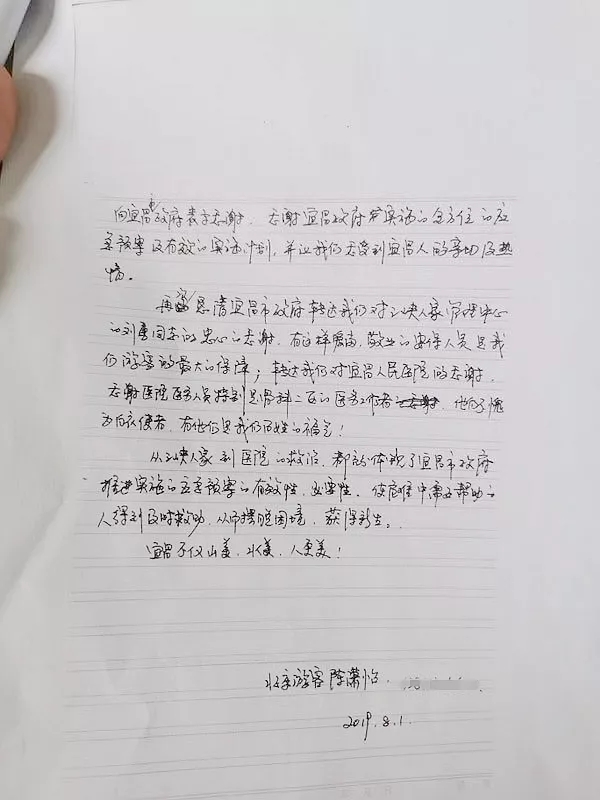 向宜昌市政府表示感谢。感谢宜昌政府所实施的全方位的应
急预案及有效的实施计划,并让我们感受到宜昌人的亲切及热
情。
再次恳请宜昌市政府转达我们对三峡人家管理中心
的刘勇同志的衷心的感谢,有这样 敬业的安保人员是我
们游客的最大的保障;转达我们对宜昌人民医院的感谢,
感谢医院医务人员特别是骨科二区的医务工作者 他们不愧
为白衣使者,有他们是我们百姓的福气!
从三峡人家到医院的救治,都能体现了宜昌市政府
推进实施的应急预案的有效性,必要性。使危难中需要帮助的
人得到及时救助,从而摆脱困境,获得新生。
宜昌不仅山美,水美,人更美!
北京游客 陈萧怡
2019.8.1.